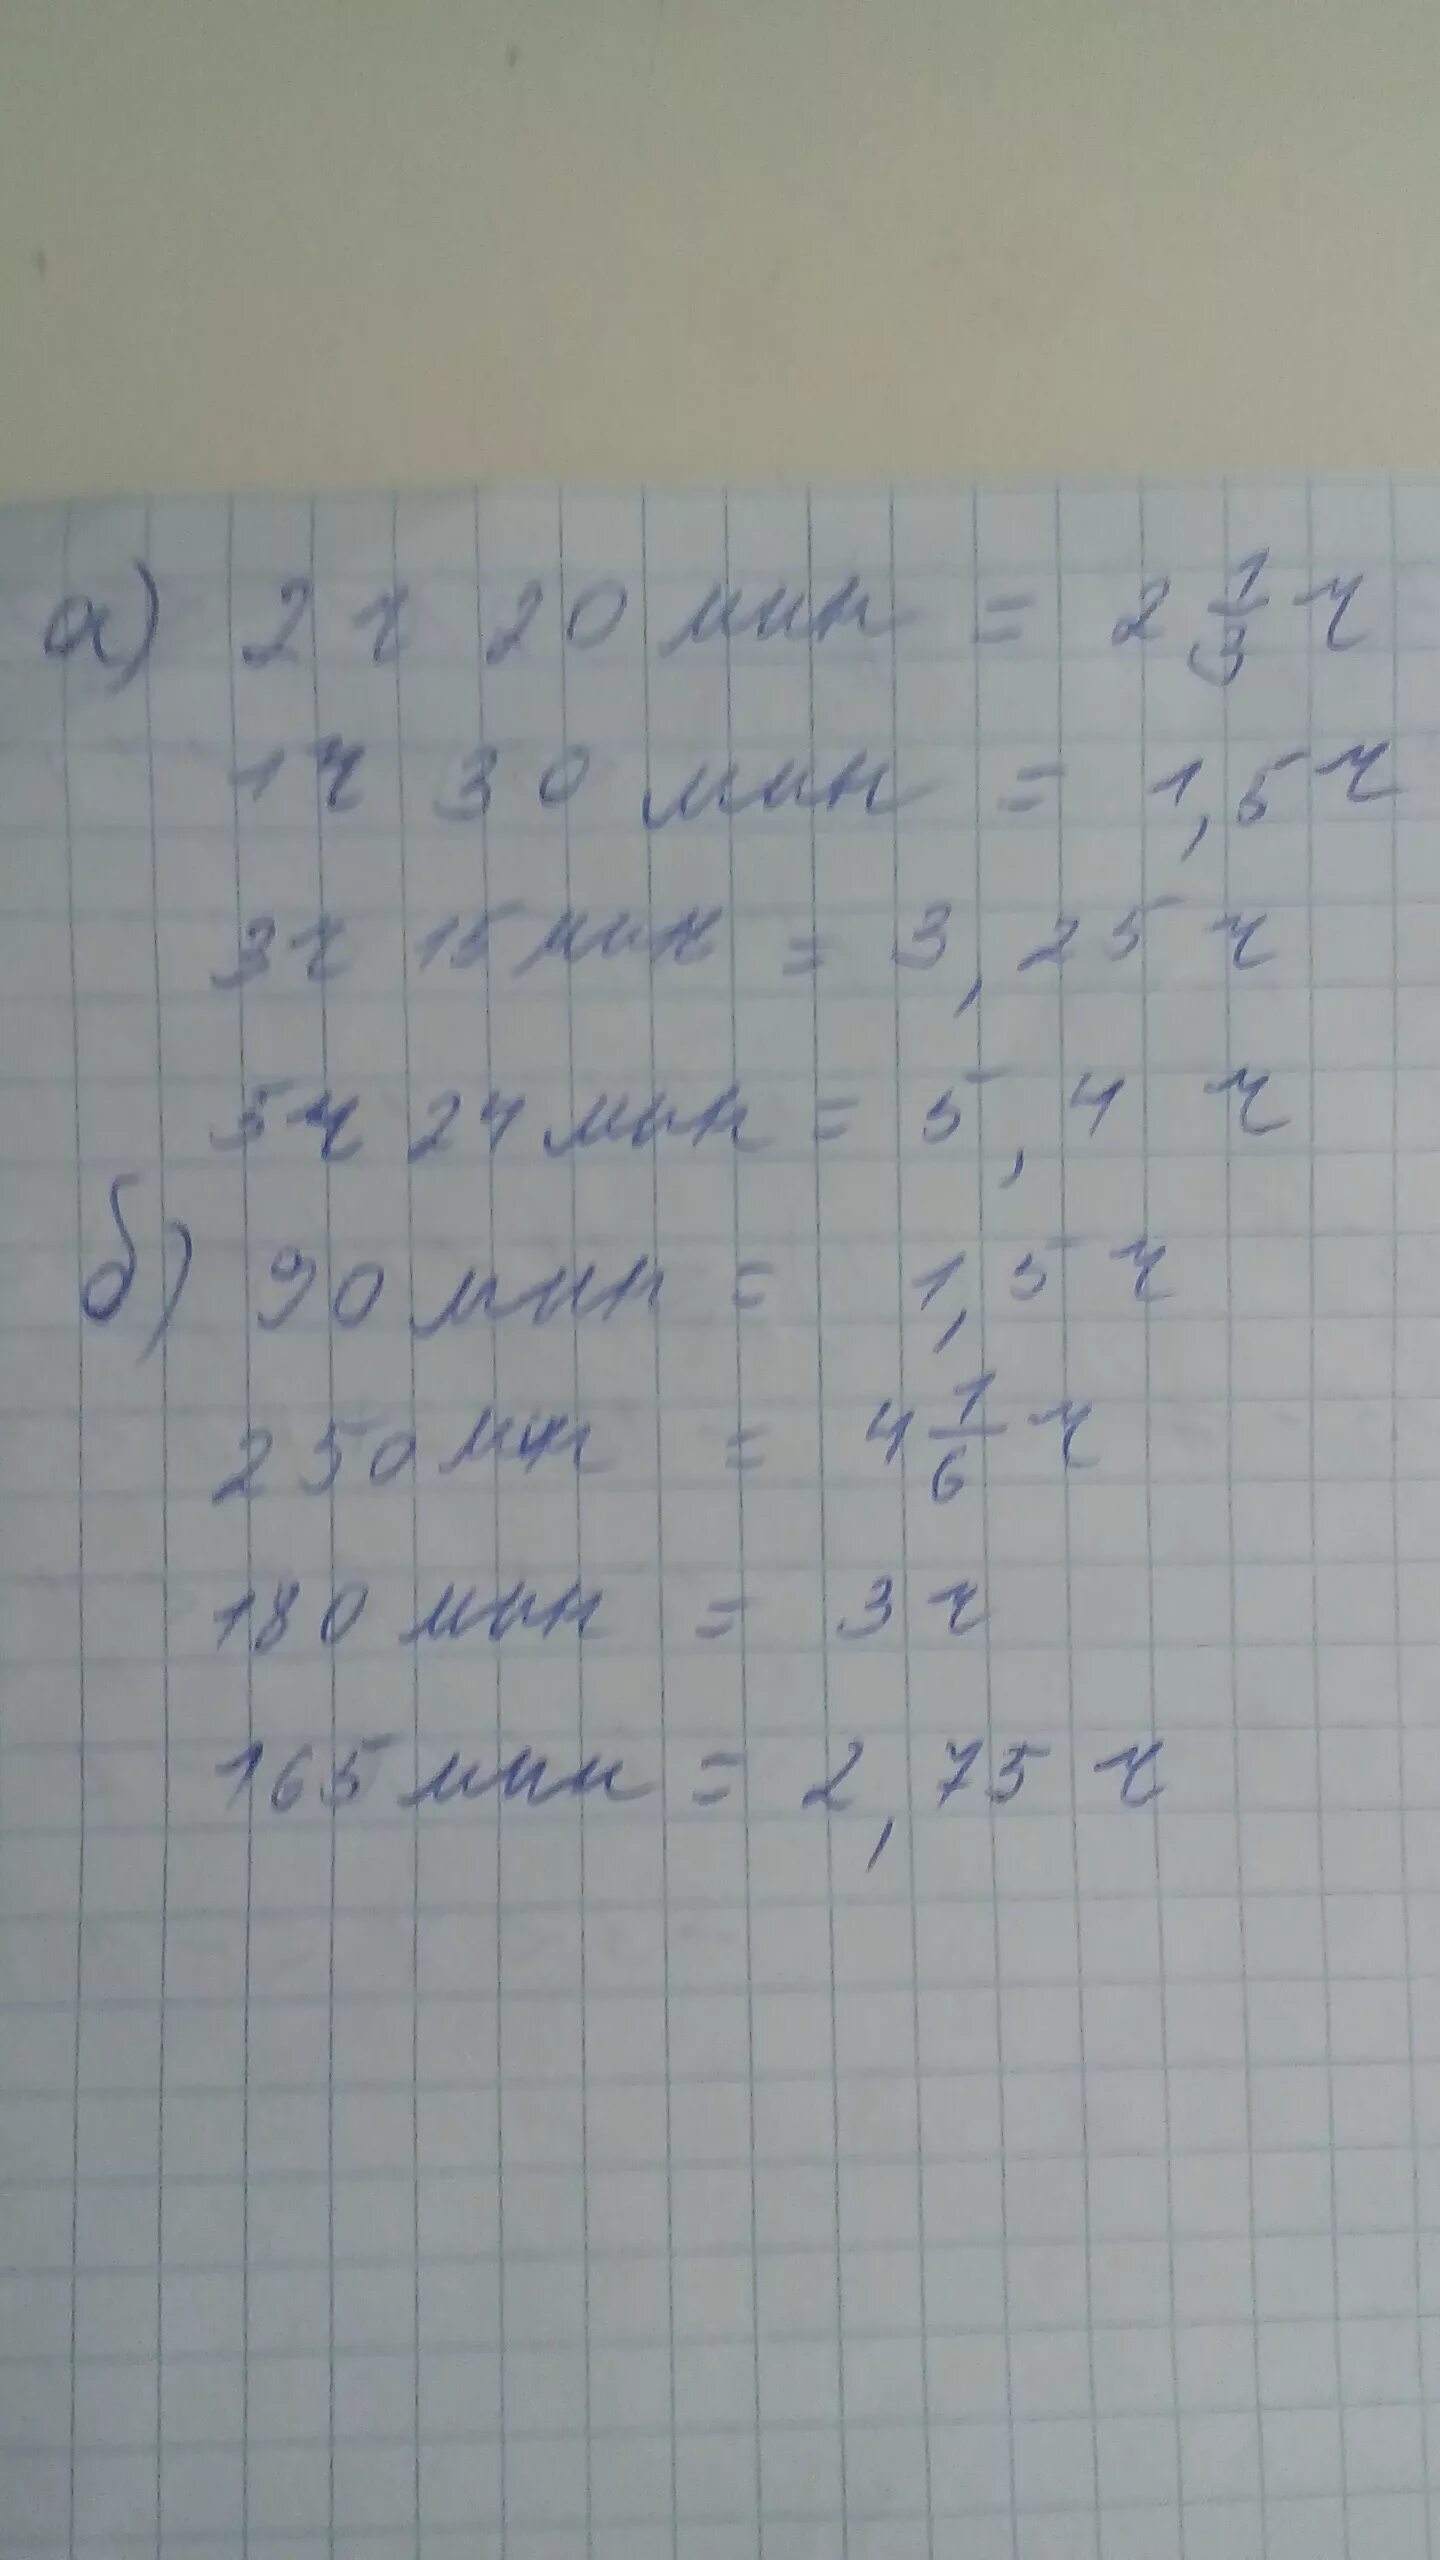 а) 2 ч 20 мин = 2 1/3 ч
1ч 30 мин = 1,5 ч
3ч 15 мин = 3,25 ч
5ч 24 мин = 5,4 ч
б) 90 мин = 1,5 ч
250 мин = 4 1/6 ч
180 мин = 3 ч
165 мин = 2,75 ч